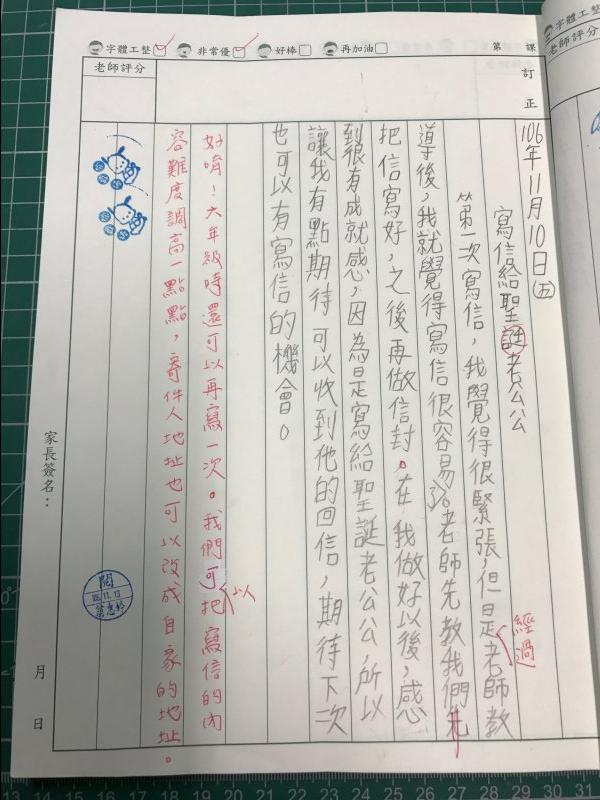 字體工整 非常優 好棒 再加油 第 課
字體工整
老師評分
老師評分
訂正
106年11月10日(五)
寫信給聖誕老公公
第一次寫信,我覺得很緊張,但是老師教
經過
導後,我就覺得寫信很容易。老師先教我們先
把信寫好,之後再做信封。在我做好以後,感
到很有成就感,因為是寫給聖誕老公公,所以
讓我有點期待可以收到他的回信,期待下次
也可以有寫信的機會。
好唷!六年級時還可以再寫一次。我們可把寫信的內
以
容難度調高一點點,寄件人地址也可以改成自家的地址。
閱
11.13
家長簽名: 月 日
13 14 15 16 17 18 19 20 21 22 23 24 25 26 27 28 29 30 31